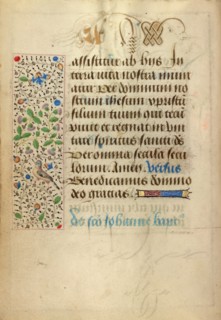 assistitur ab hiis In
terra vita nostra muni
atur Per dominum no
strum ihesum xpristu
filium tuum qui tecu
vivit et regnat in uni
tate spiritus sancti de
Per omnia secula secu
lorum. Amen. Versus
Benedicamus domino
deo gracias
De sco Johanne bapt